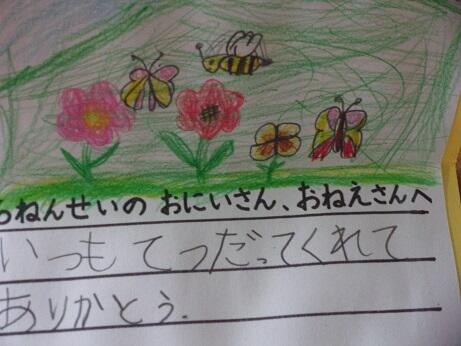 ねんせいの おにいさん、おねえさんへ
いつも てつだってくれて
ありがとう.